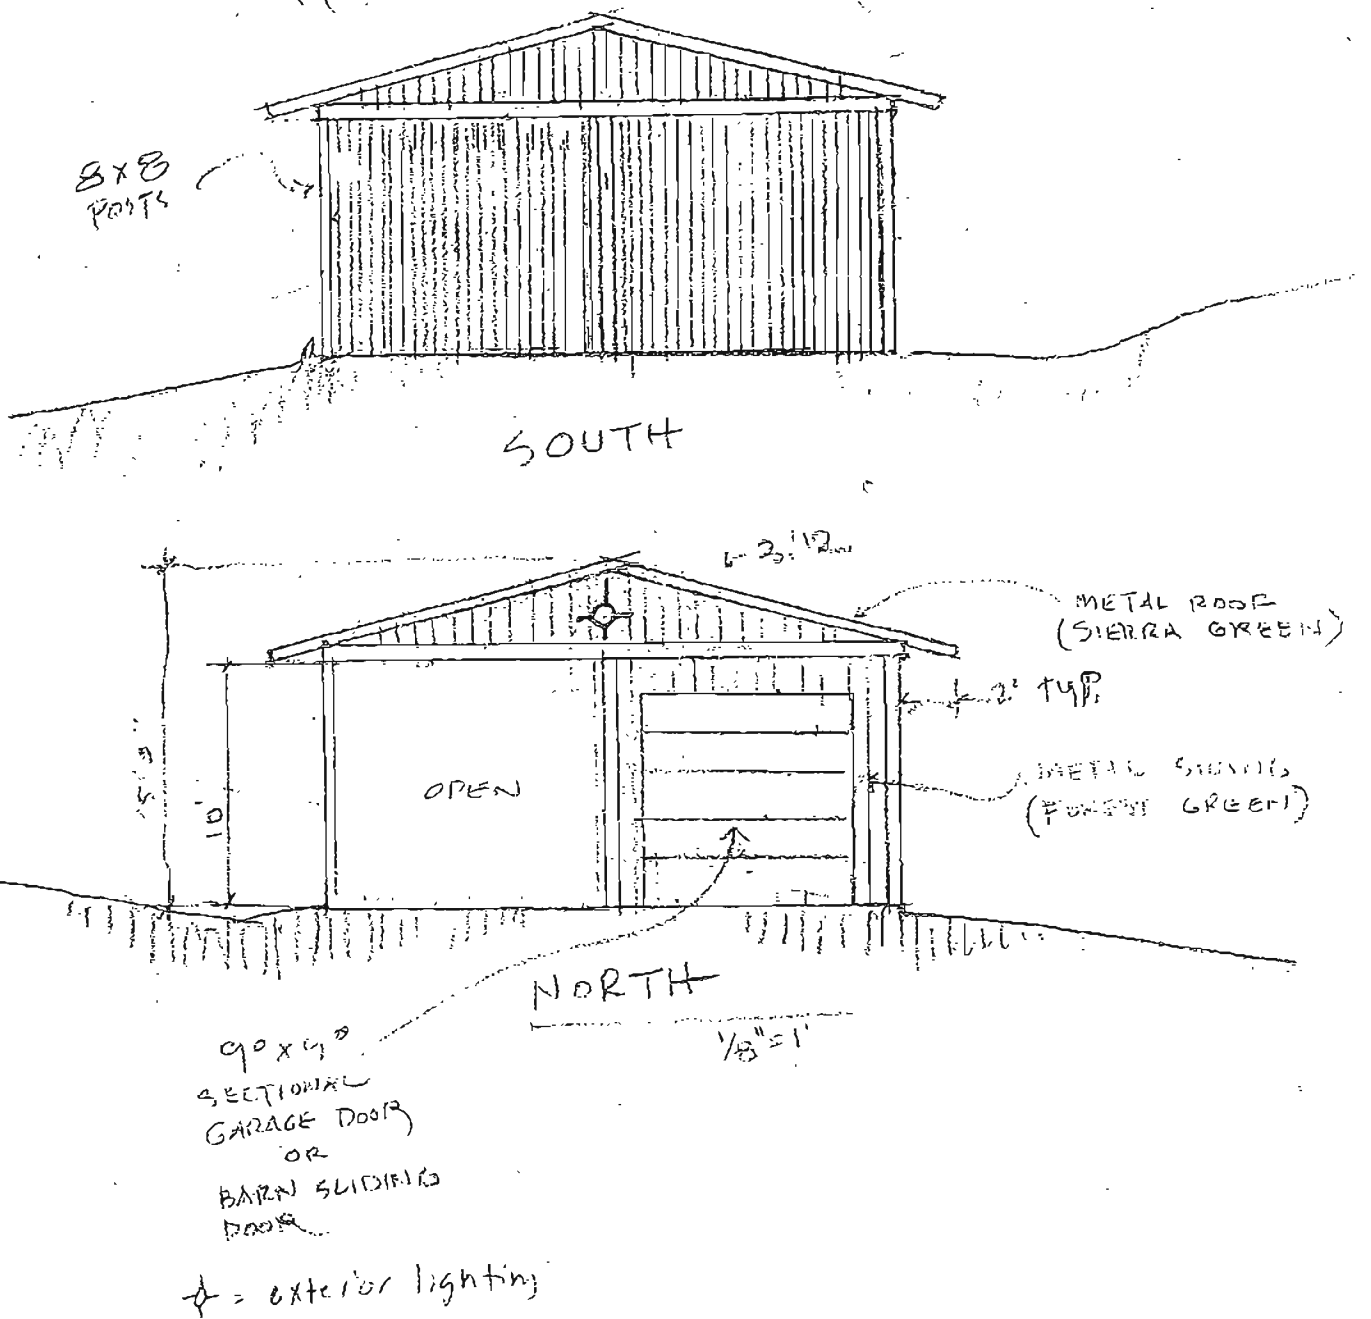 8x8
POSTS
SOUTH
3:12
METAL ROOF
(SIERRA GREEN)
2' TYP.
METAL SIDING
(FOREST GREEN)
10'
OPEN
NORTH
1/8"=1'
9⁰ x 9⁰
SECTIONAL
GARAGE DOOR
OR
BARN SLIDING
DOOR
= exterior lighting